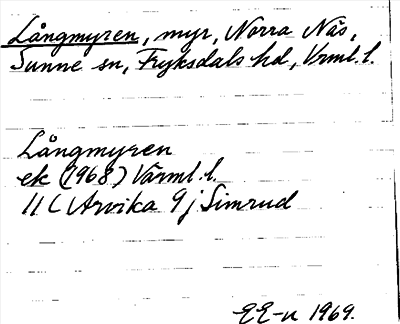 Långmyren, myr, Norra Nås,
Sunne sn, Fryksdals hd, Vrml. l.
Långmyren
ek (1968) Värml. l.
11C Arvika 9j Simrud
EE-n 1969.